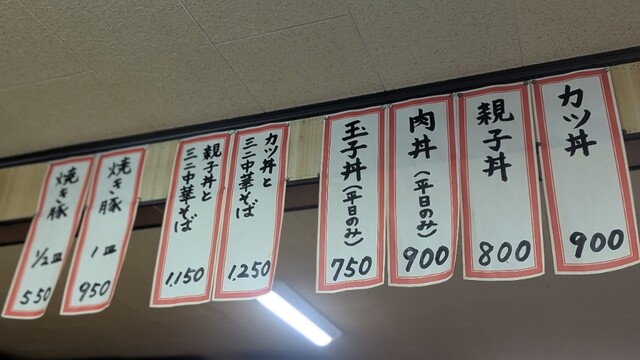 カツ丼
900
親子丼
800
肉丼(平日のみ)
900
玉子丼(平日のみ)
750
カツ丼と
ミニ中華そば
1.250
親子丼と
ミニ中華そば
1.150
焼き豚
1皿
950
焼き豚
1/2皿
550